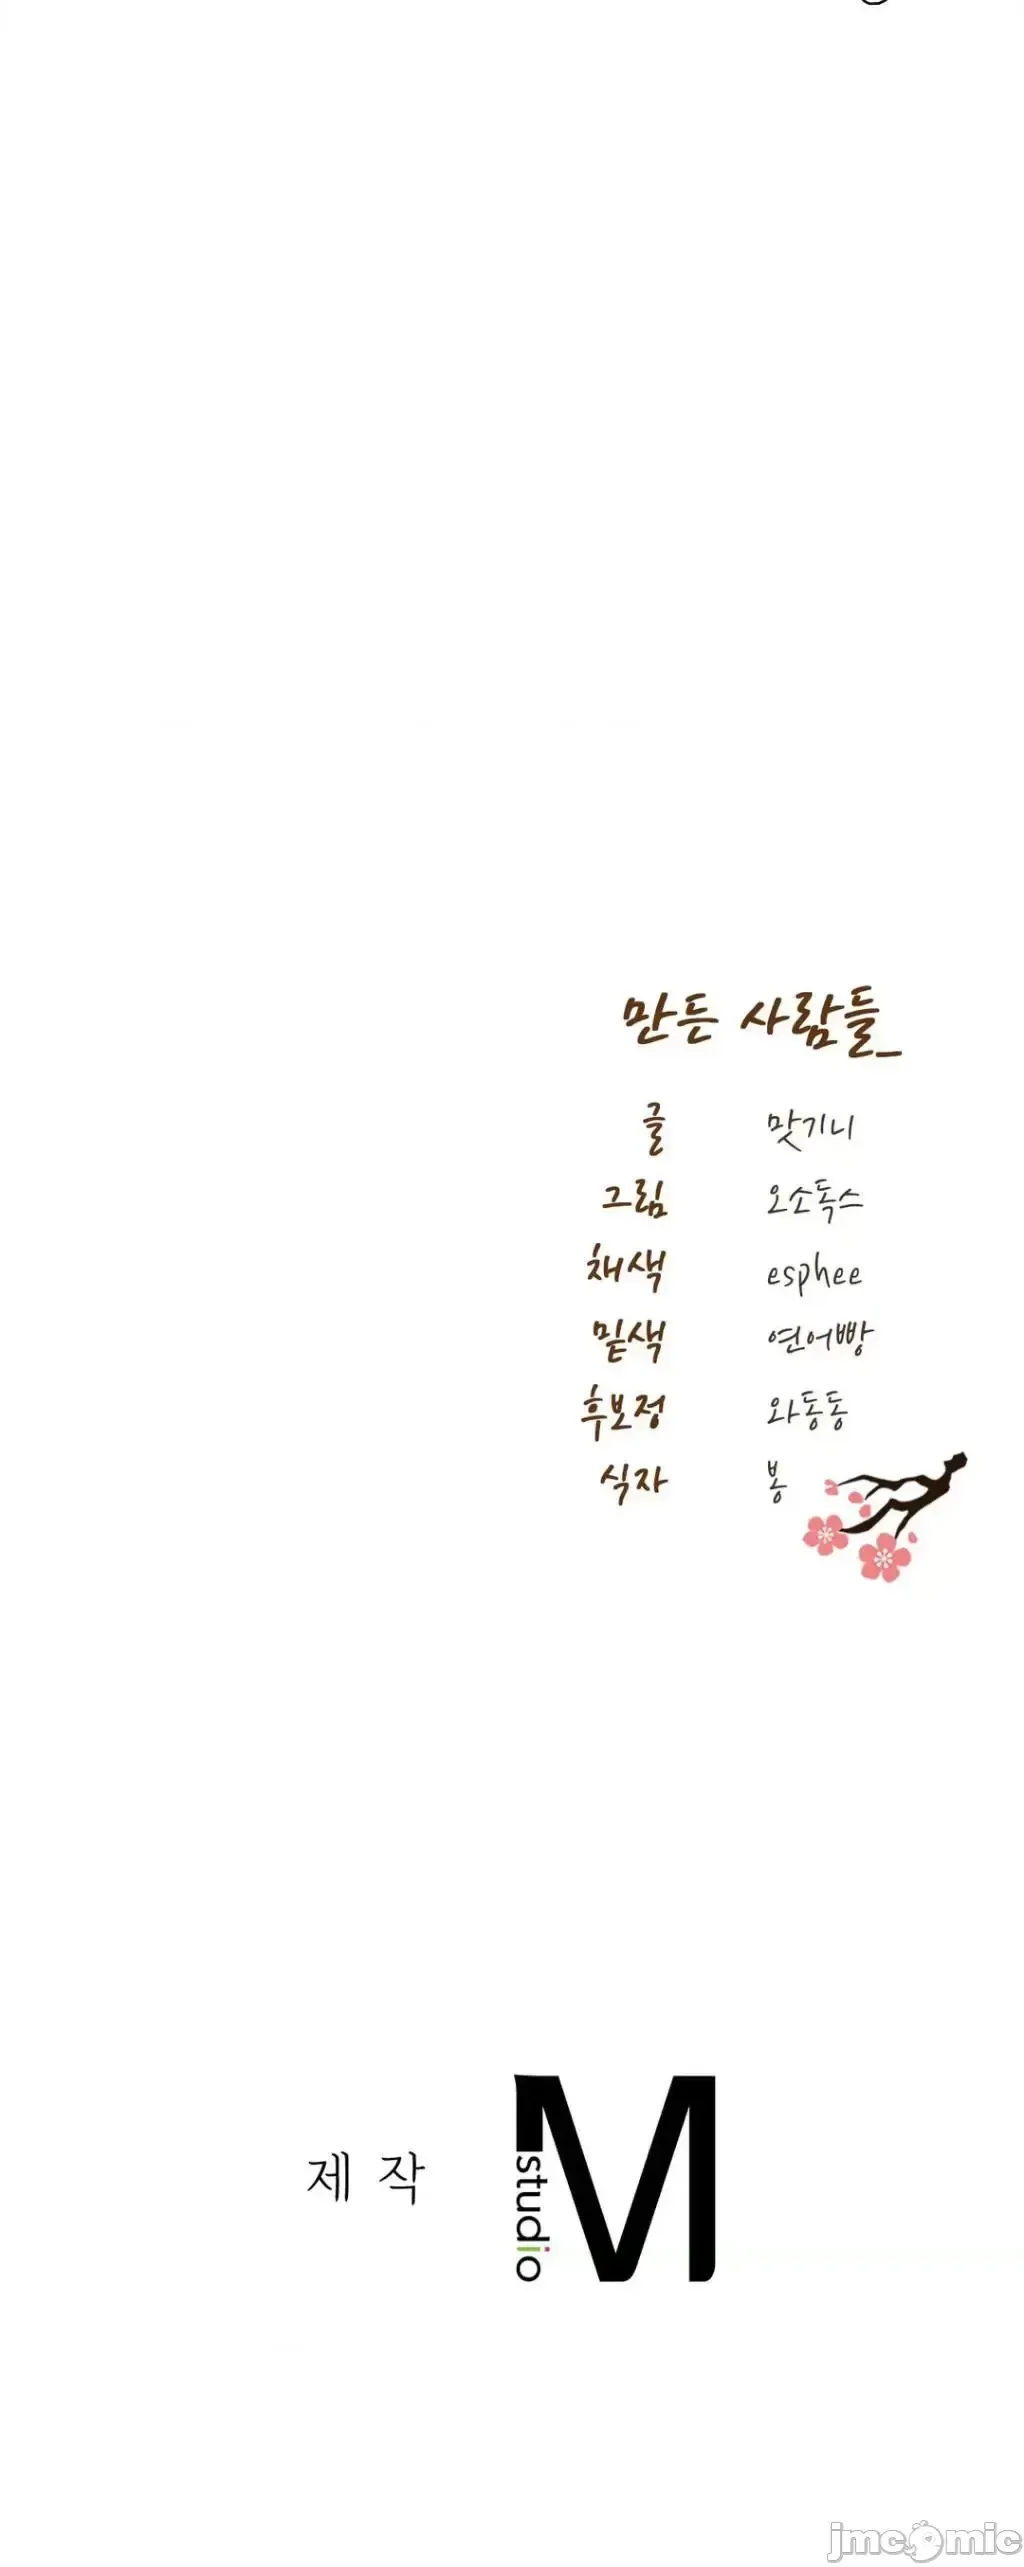 만든 사람들_
글 맛기니
그림 오소독스
채색 esphee
밑색 연어빵
후보정 와동동
식자 봉
제작 M studio
jmcomic